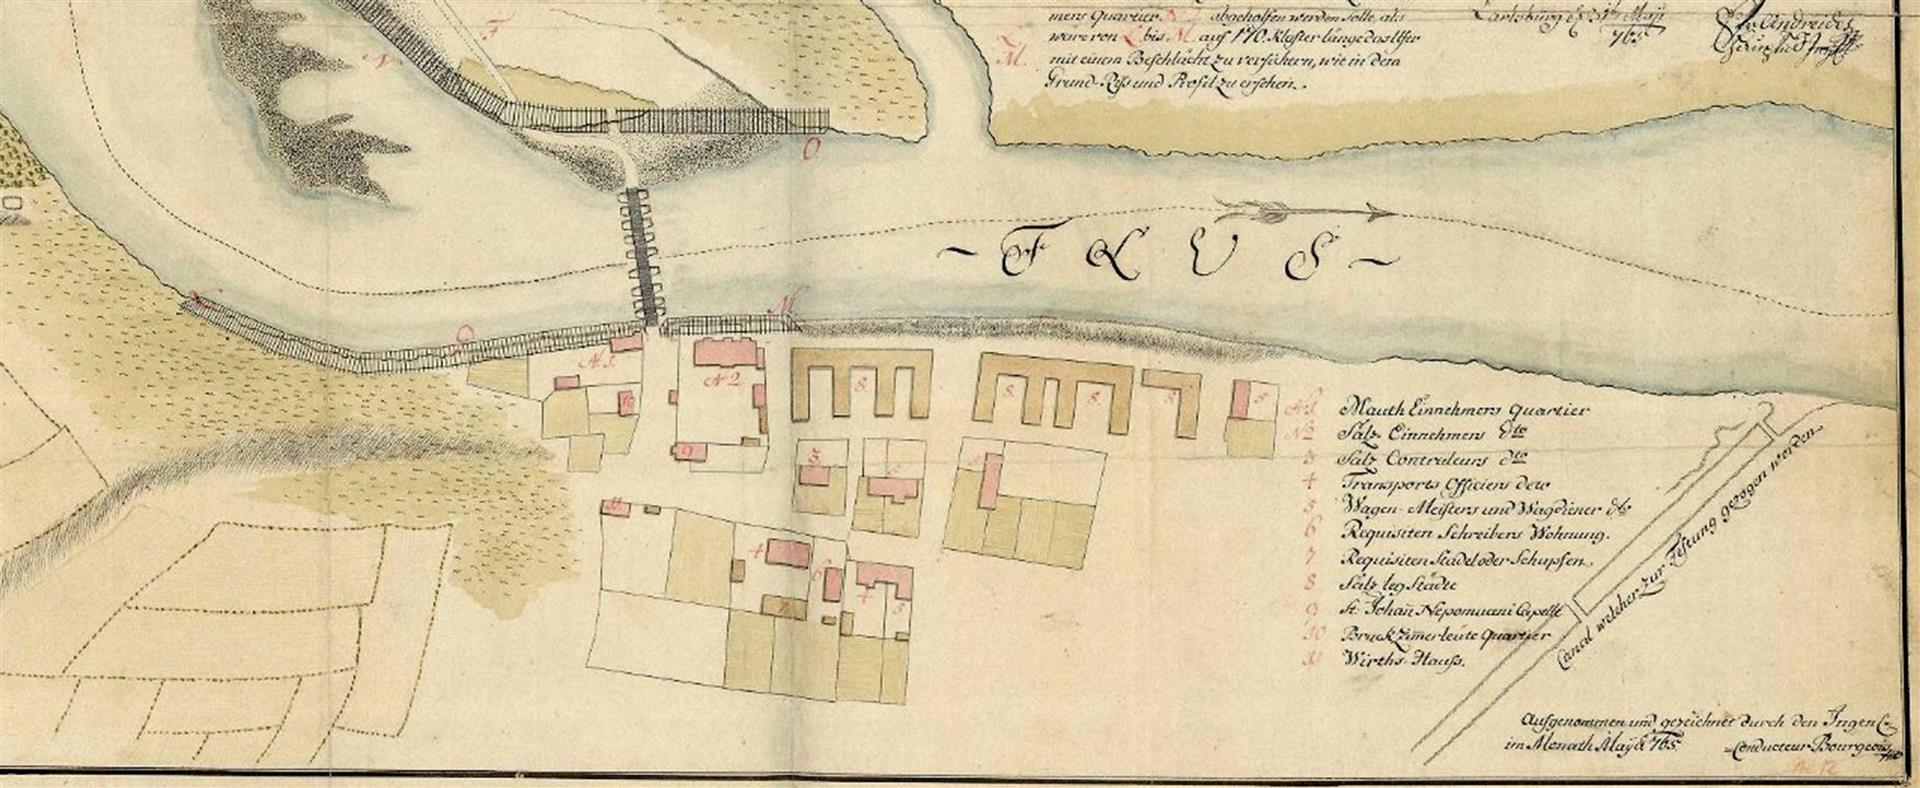 mens Quartier N 2 abgeholfen werden solle, als
L wäre von L bis M auf 170 Klafter länge dasselbe
M mit einem Beschlächt zu versichern, wie in dem
Grund-Riss und Profil zu ersehen.
Carlsburg d 31 May
765
F
N
O
- FLUS -
N
O
M
N 1
N 2
10
9
8
8
8
8
5
3
11
4
6
7
4
5
N1 Mauth Einnehmers Quartier
N2 Saltz-Einnehmers dto
3 Saltz Controleurs dto
4 Transports Officiers deto
5 Wagen-Meisters und Wagdiener dto
6 Requisiten Schreibers Wohnung.
7 Requisiten Stadel oder Schupfen.
8 Saltz leg Städte
9 St. Johañ Nepomuceni Capelle
10 Bruck Zimerleute Quartier
11 Wirths-Hauss.
Canal welcher zur Festung gezogen worden.
Aufgenommen und gezeichnet durch den Ingen
im Monath Maÿ 765 Conducteur Bourgeois